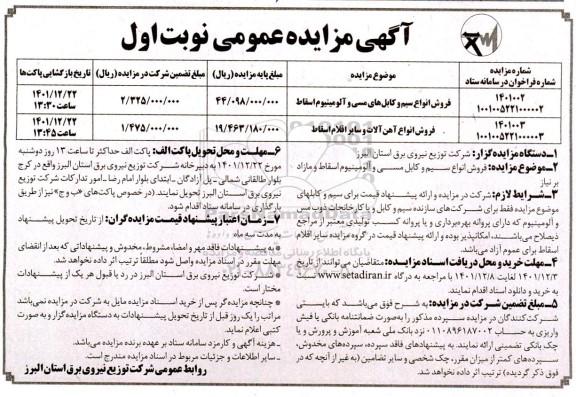 آگهی مزایده عمومی نوبت اول
شماره مزایده
شماره فراخوان در سامانه ستاد
موضوع مزایده
مبلغ پایه مزایده (ریال)
مبلغ تضمین شرکت در مزایده (ریال)
تاریخ بازگشایی پاکت‌ها
۱۴۰۱۰۰۲
۱۰۰۱۰۰۵۲۲۱۰۰۰۰۰۲
فروش انواع سیم و کابل‌های مسی و آلومینیوم اسقاط
۴۴/۰۹۸/۰۰۰/۰۰۰
۲/۳۲۵/۰۰۰/۰۰۰
۱۴۰۱/۱۲/۲۲
ساعت ۱۳:۳۰
۱۴۰۱۰۰۳
۱۰۰۱۰۰۵۲۲۱۰۰۰۰۰۳
فروش انواع آهن آلات و سایر اقلام اسقاط
۱۹/۴۶۳/۱۸۰/۰۰۰
۱/۴۷۵/۰۰۰/۰۰۰
۱۴۰۱/۱۲/۲۲
ساعت ۱۳:۴۵
۱-دستگاه مزایده گزار: شرکت توزیع نیروی برق استان البرز
۲-موضوع مزایده: فروش انواع سیم و کابل مسی و آلومینیوم اسقاط و مازاد
بر نیاز
۳-شرایط لازم: شرکت در مزایده و ارائه پیشنهاد قیمت برای سیم و کابلهای
موضوع مزایده فقط برای شرکت‌های سازنده سیم و کابل و یا کارخانجات ذوب مس
و آلومینیوم که دارای پروانه بهره‌برداری و یا پروانه کسب تولیدی معتبر از مراجع
ذیصلاح می‌باشند، امکانپذیر بوده و ارائه پیشنهاد قیمت در گروه مزایده سایر اقلام
اسقاط برای عموم آزاد می‌باشد.
۴-مهلت خرید و محل دریافت اسناد مزایده: متقاضیان می‌توانند از تاریخ
۱۴۰۱/۱۲/۳ لغایت ۱۴۰۱/۱۲/۸ با مراجعه به درگاه www.setadiran.ir نسبت
به خرید و دانلود اسناد اقدام نمایند.
۵-مبلغ تضمین شرکت در مزایده: به شرح فوق می‌باشد که بایستی
شرکت‌کنندگان در مزایده سپرده مذکور را به‌صورت ضمانتنامه بانکی یا فیش
واریزی به حساب ۰۱۱۰۸۹۶۱۸۷۰۰۲ نزد بانک ملی شعبه آموزش و پرورش و یا
چک بانکی تضمینی ارائه نمایند. به پیشنهادهای فاقد سپرده، سپرده‌های مخدوش،
سپرده‌های کمتر از میزان مقرر، چک شخصی و سایر تضامین (به غیر از آنچه که در
فوق ذکر گردیده) ترتیب اثر داده نخواهد شد.
۶-مهلت و محل تحویل پاکت الف: پاکت الف حداکثر تا ساعت ۱۳ روز دوشنبه
مورخ ۱۴۰۱/۱۲/۲۲ به دبیرخانه شرکت توزیع نیروی برق استان البرز واقع در کرج
بلوار طالقانی شمالی-پل آزادگان-ابتدای بلوار امام رضا-امور تدارکات شرکت توزیع
نیروی برق استان البرز تحویل نمایند. (در خصوص پاکت‌های «ب و ج» نیز از طریق
بارگذاری در سامانه ستاد اقدام شود.
۷-زمان اعتبار پیشنهاد قیمت مزایده گران: از تاریخ تحویل پیشنهاد
به مدت سه ماه
- به پیشنهادات فاقد مهر و امضاء مشروط، مخدوش و پیشنهاداتی که بعد از انقضای
مهلت مقرر در اسناد مزایده واصل شود مطلقا ترتیب اثر داده نخواهد شد.
- شرکت توزیع نیروی برق استان البرز در رد یا قبول هر یک از پیشنهادات
مختار است.
- چنانچه مزایده‌گر پس از خرید اسناد مزایده مایل به شرکت در مزایده نمی‌باشد
مراتب را یک روز قبل از تاریخ تحویل پیشنهادات به دستگاه مزایده گزار و به صورت
کتبی اعلام نماید.
- هزینه آگهی و کارمزد سامانه ستاد بر عهده برنده مزایده می‌باشد.
- سایر اطلاعات و جزئیات مربوط در اسناد مزایده مندرج است.
روابط عمومی شرکت توزیع نیروی برق استان البرز